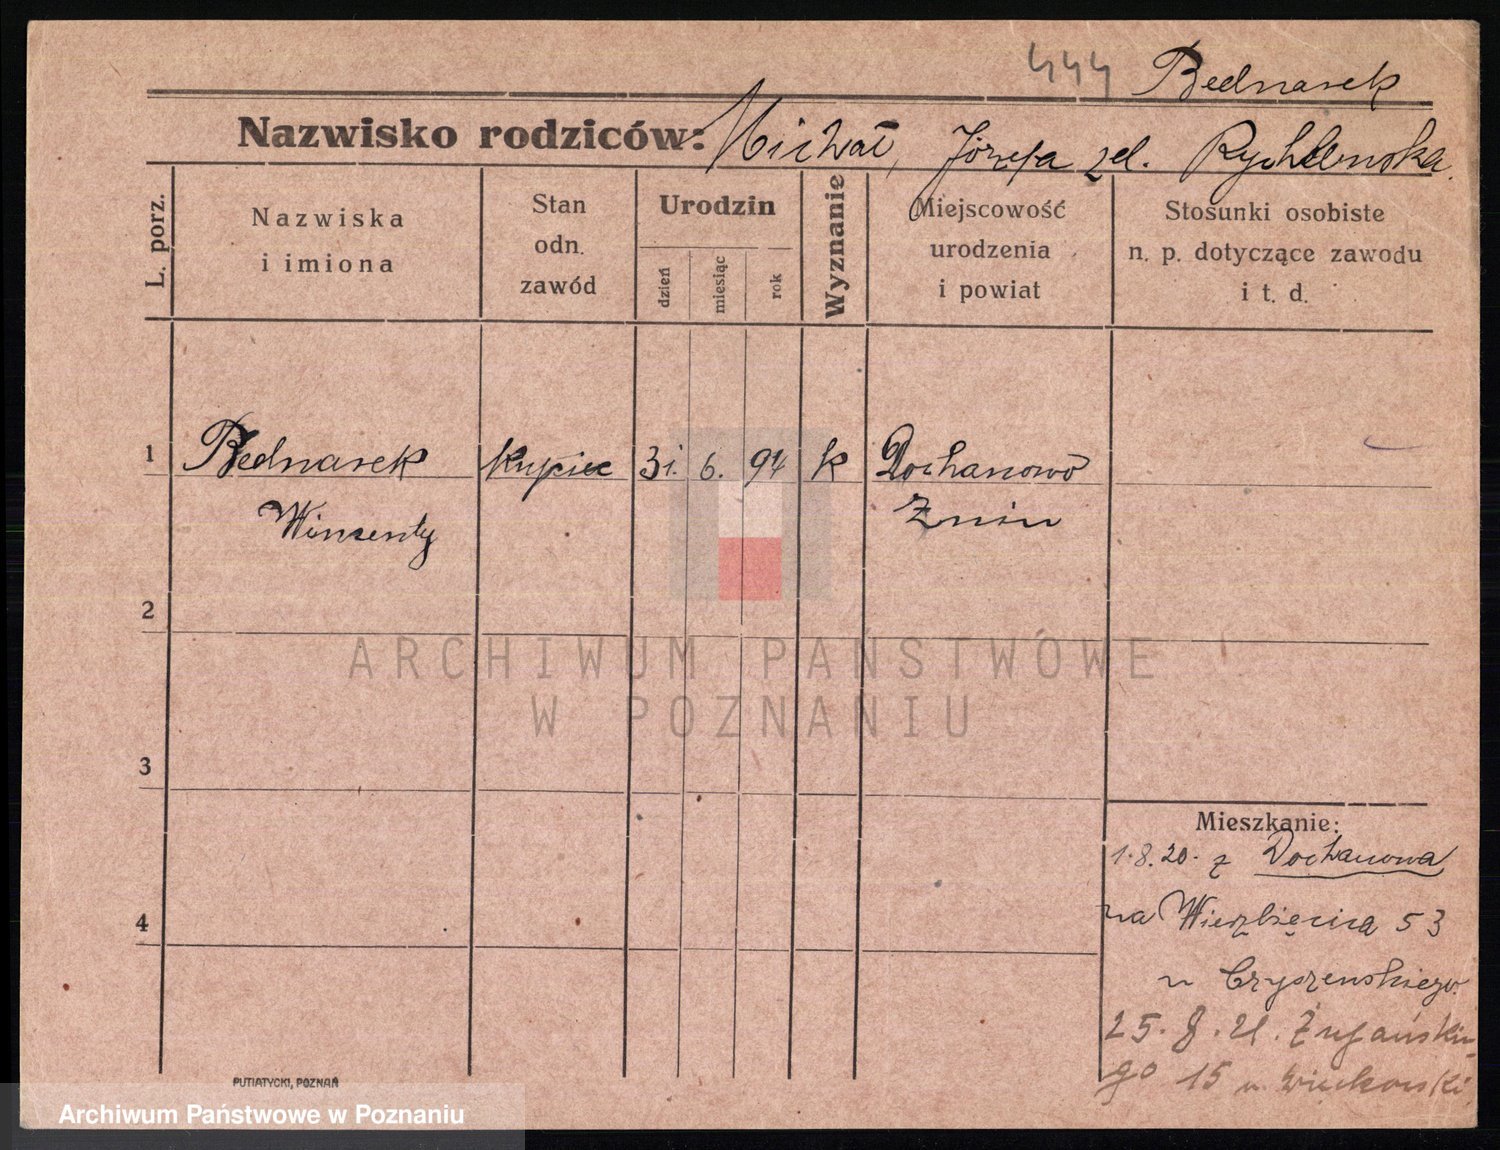 444 Bednarek
Nazwisko rodziców: Michał, Józefa zd.
L. porz.
Nazwiska
i imiona
Stan
odn.
zawód
Urodzin
dzień
miesiąc
rok
Wyznanie
Miejscowość
urodzenia
i powiat
Stosunki osobiste
n. p. dotyczące zawodu
i t. d.
1 Bednarek kupiec 31. 6. 94 k Dochanowo
Winsenty Żnin
2
ARCHIWUM PAŃSTWOWE
W POZNANIU
3
Mieszkanie:
1.8.20. z Dochanowa
4
na Wierzbięcica 53
u Czyszenskiego
25. 8. 21.
go 15 u. Więckowski
PUTIATYCKI, POZNAŃ
Archiwum Państwowe w Poznaniu